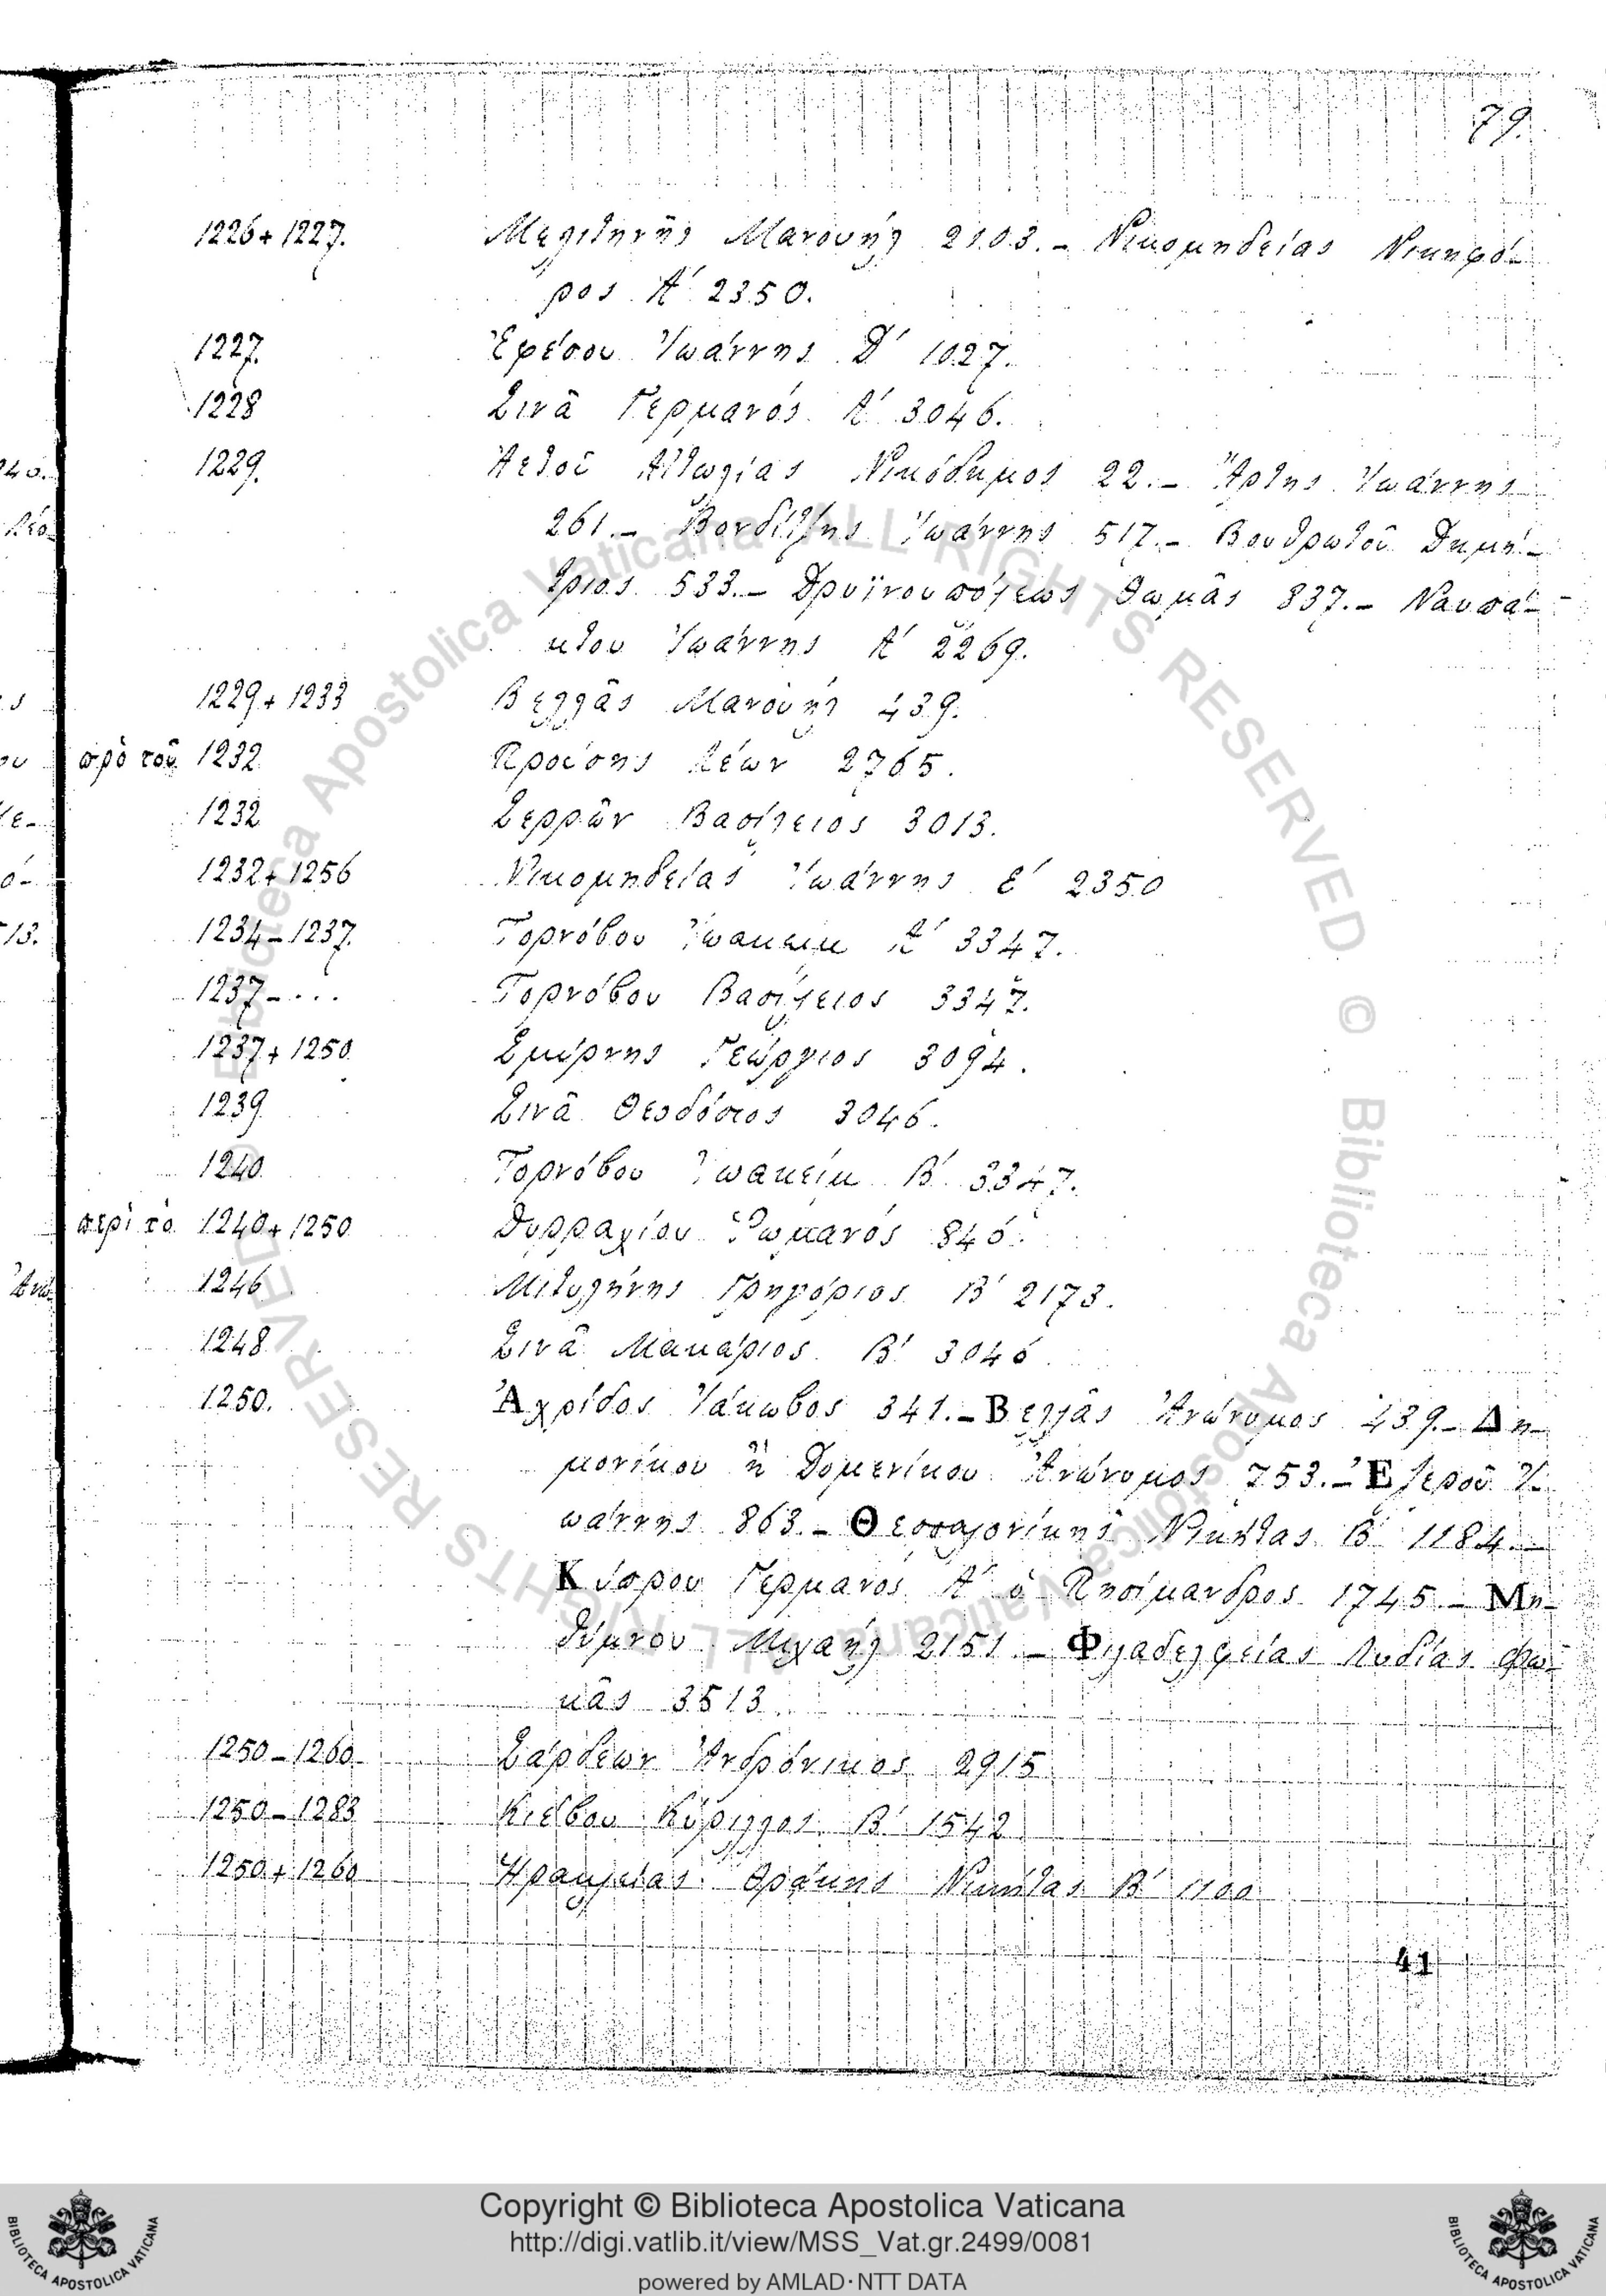 79.
1226+1227. Μελιτηνῆς Μανουήλ 2103.– Νικομηδείας Νικηφό-
ρος Α′ 2350.
1227. Ἐφέσου Ἰωάννης Δ′ 1027.
1228 Σινᾶ Γερμανός Α′ 3046.
1229. Ἀετοῦ Αἰτωλίας Νικόδημος 22.– Ἄρτης Ἰωάννης
261.– Βονδίτζης Ἰωάννης 517.– Βουθρωτοῦ Δημή-
τριος 533.– Δρυϊνουπόλεως Θωμᾶς 837.– Ναυπά-
κτου Ἰωάννης Α′ 2269.
1229+1233 Βελλᾶς Μανουήλ 439.
πρὸ τοῦ 1232 Προύσης Λέων 2765.
1232 Σερρῶν Βασίλειος 3013.
1232+1256 Νικομηδείας Ἰωάννης Ε′ 2350
1234–1237. Τορνόβου Ἰωακείμ Α′ 3347.
1237–... Τορνόβου Βασίλειος 3347.
1237+1250 Σμύρνης Γεώργιος 3094.
1239 Σινᾶ Θεοδόσιος 3046.
1240 Τορνόβου Ἰωακείμ Β′ 3347.
περὶ τὸ 1240+1250 Δυρραχίου Ῥωμανός 846.
1246 Μιτυλήνης Γρηγόριος Β′ 2173.
1248 Σινᾶ Μακάριος Β′ 3046
1250. Ἀχρίδος Ἰάκωβος 341.– Βελλᾶς Ἀνώνυμος 439.– Δη-
μονίκου ἢ Δομενίκου Ἀνώνυμος 753.– Ἐζεροῦ Ἰ-
ωάννης 863.– Θεσσαλονίκης Νικήτας Β′ 1184.–
Κύπρου Γερμανός Α′ ὁ Πησίμανδρος 1745.– Μη-
θύμνου Μιχαήλ 2151.– Φιλαδελφείας Λυδίας Φω-
κᾶς 3513
1250–1260 Σάρδεων Ἀνδρόνικος 2915
1250–1283 Κιέβου Κύριλλος Β′ 1542
1250+1260 Ἡρακλείας Θράκης Νικήτας Β′ 1100
41
Copyright © Biblioteca Apostolica Vaticana
http://digi.vatlib.it/view/MSS_Vat.gr.2499/0081
powered by AMLAD·NTT DATA
BIBLIOTECA APOSTOLICA VATICANA
BIBLIOTECA APOSTOLICA VATICANA